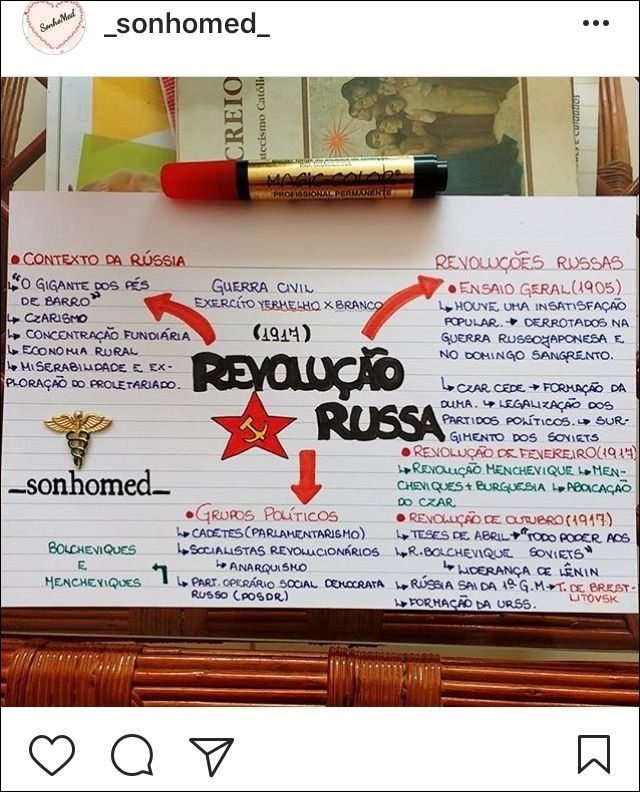 _sonhomed_
SonhoMed
CREIO
tecismo Católi
MAGIC COLOR
PROFISSIONAL PERMANENTE
• CONTEXTO DA RÚSSIA
↳ "O GIGANTE DOS PÉS
DE BARRO"
↳ CZARISMO
↳ CONCENTRAÇÃO FUNDIÁRIA
↳ ECONOMIA RURAL
↳ MISERABILIDADE E EX-
PLORAÇÃO DO PROLETARIADO.
GUERRA CIVIL
EXERCÍTO VERMELHO X BRANCO
(1917)
REVOLUÇÃO
RUSSA
REVOLUÇÕES RUSSAS
• ENSAIO GERAL (1905)
↳ HOUVE UMA INSATISFAÇÃO
POPULAR. → DERROTADOS NA
GUERRA RUSSOXJAPONESA E
NO DOMINGO SANGRENTO.
↳ CZAR CEDE → FORMAÇÃO DA
DUMA. ↳ LEGALIZAÇÃO DOS
PARTIDOS POLÍTICOS. ↳ SUR-
GIMENTO DOS SOVIETS
• REVOLUÇÃO DE FEVEREIRO (1917)
↳ REVOLUÇÃO MENCHEVIQUE ↳ MEN-
CHEVIQUES + BURGUESIA ↳ ABDICAÇÃO
DO CZAR
• REVOLUÇÃO DE OUTUBRO (1917)
↳ TESES DE ABRIL → "TODO PODER AOS
↳ R. BOLCHEVIQUE SOVIETS"
↳ LIDERANÇA DE LÊNIN
↳ RÚSSIA SAI DA 1ª G.M → T. DE BREST-
LITOVSK
↳ FORMAÇÃO DA URSS.
_sonhomed_
• GRUPOS POLÍTICOS
↳ CADETES (PARLAMENTARISMO)
↳ SOCIALISTAS REVOLUCIONÁRIOS
↳ ANARQUISMO
↳ PART. OPERÁRIO SOCIAL DEMOCRATA
RUSSO (POSDR)
BOLCHEVIQUES
E
MENCHEVIQUES